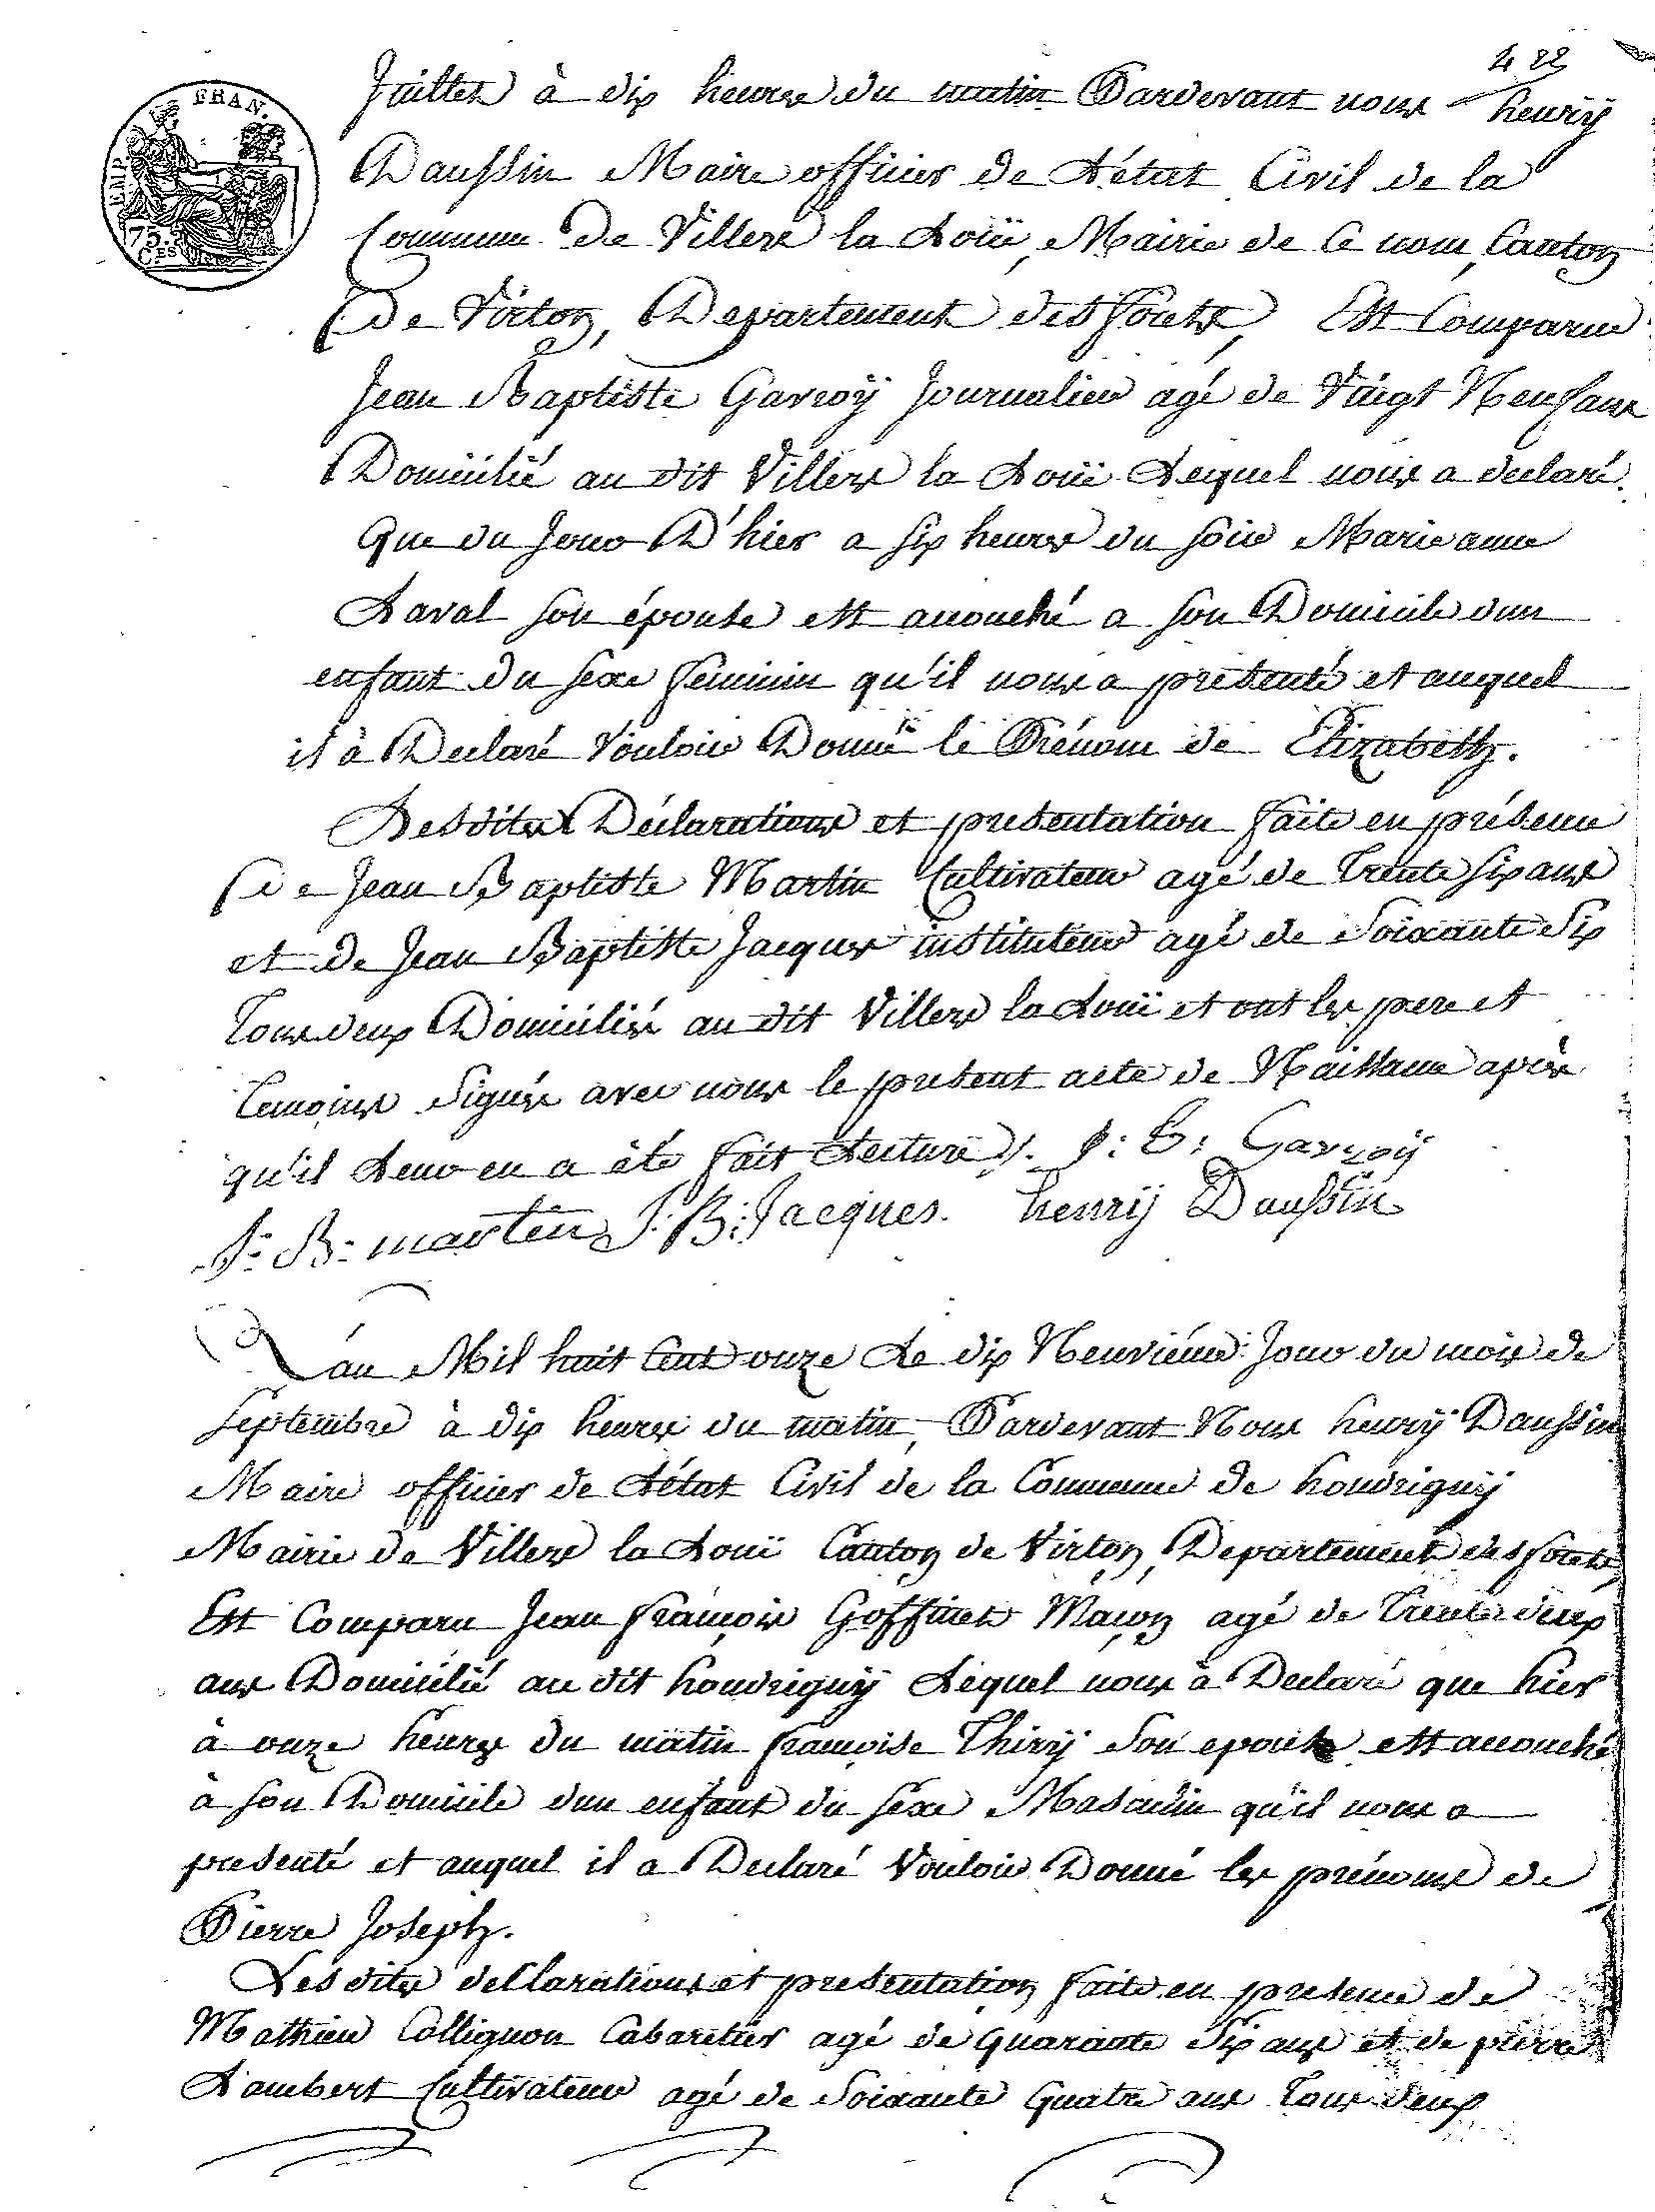 422
EMP. FRAN.
75.
CES
Juillet à dix heures du matin Pardevant nous henrÿ
Daussin Maire officier de L'état Civil de la
Commune De Villers la Loüe, Mairie de Ce nom, Canton
De Virton, Departement des forets, Est Comparue
Jean Baptiste Gavroÿ Journalier agé de Vingt Neuf ans
Domicilié au dit Villers la Loüe Lequel nous a declaré
que du Jour D'hier a six heures du soir Marie anne
Laval son épouse est accouché a son Domicile dun
enfant du sexe feminin qu'il nous a présenté et auquel
il à Declaré Vouloir Donné le Prénom de Elizabeth.
Lesdites Déclarations et presentation faite en présence
de Jean Baptiste Martin Cultivateur agé de Trente six ans
et de Jean Baptiste Jacques instituteur agé de Soixante Six
Tous deux Domiciliés au dit Villers la Loüe et ont les pere et
Temoins Signés avec nous le présent acte de Naissance après
qu'il Leur en a été fait Lecture ./. J: B: Gavroÿ
J: B: martin J: B: Jacques. henrÿ Daussin
L'an Mil huit Cent onze Le dix Neuviéme Jour du mois de
Septembre à dix heures du matin, Pardevant Nous henrÿ Daussin
Maire officier de L'état Civil de la Commune de houdrignÿ
Mairie de Villers la Loüe Canton de Virton, Departement des forets,
Est Comparu Jean françois Goffinet Maçon agé de Trente deux
ans Domicilié au dit houdrignÿ Lequel nous à Declaré que hier
à onze heures du matin françoise Thirÿ Son epouse est accouché
à son Domicile dun enfant du séxe Masculin qu'il nous a
presenté et auquel il a Declaré Vouloir Donné les prénoms de
Pierre Joseph.
Lesdites declarations et presentation faite en presence de
Mathieu Collignon Cabaretier agé de quarante Six ans et de pierre
Lambert Cultivateur agé de Soixante Quatre ans Tous deux